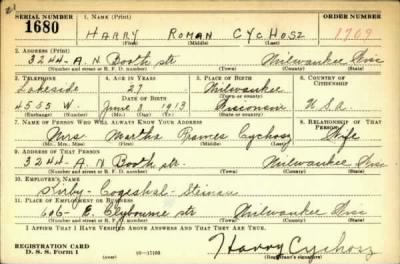 SERIAL NUMBER 1. NAME (Print) ORDER NUMBER
1680 HARRY ROMAN CYCHOSZ 1709
(First) (Middle) (Last)
2. ADDRESS (Print)
3244-A. N Booth str Milwaukee Wisc
(Number and street or R. F. D. number) (Town) (County) (State)
3. TELEPHONE 4. AGE IN YEARS 5. PLACE OF BIRTH 6. COUNTRY OF CITIZENSHIP
Lakeside 27 Milwaukee
DATE OF BIRTH
4555 W. June 1913 Wisconsin U.S.A.
(Exchange) (Number) (Mo.) (Day) (Yr.) (State or country)
7. NAME OF PERSON WHO WILL ALWAYS KNOW YOUR ADDRESS 8. RELATIONSHIP OF THAT PERSON
Mrs Martha Cychosz Wife
(Mr., Mrs., Miss) (First) (Middle) (Last)
9. ADDRESS OF THAT PERSON
3244-A. N Booth str. Milwaukee Wisc
(Number and street or R. F. D. number) (Town) (County) (State)
10. EMPLOYER'S NAME
Kirby-
11. PLACE OF EMPLOYMENT OR BUSINESS
606- E. Clybourne str Milwaukee Wisc
(Number and street or R. F. D. number) (Town) (County) (State)
I AFFIRM THAT I HAVE VERIFIED ABOVE ANSWERS AND THAT THEY ARE TRUE.
REGISTRATION CARD
D. S. S. Form 1 (over) 16-17105 Harry Cychosz
(Registrant's signature)